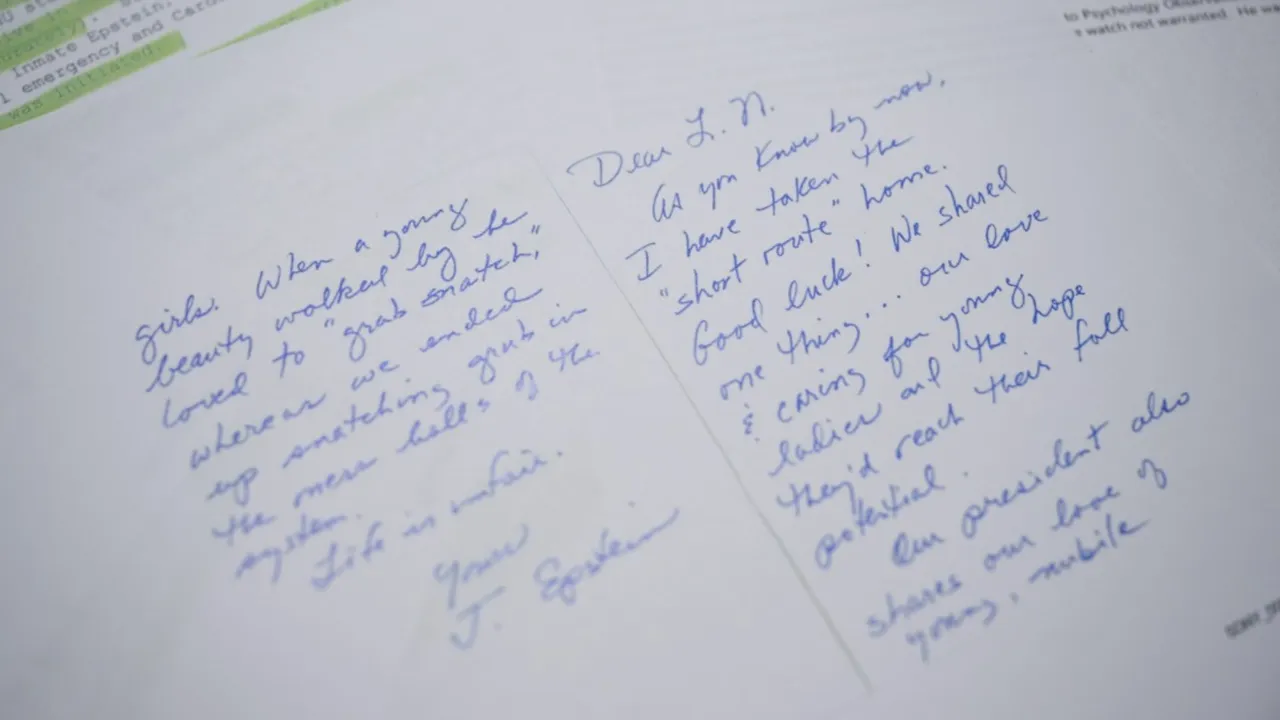 Inmate Epstein,
l emergency and Card
was initiated.
to Psychology Observa
watch not warranted. He wa
Dear L. N.
As you know by now,
I have taken the
"short route" home.
Good luck! We shared
one thing... our love
& caring for young
ladies and the hope
they'd reach their full
potential.
Our president also
shares our love of
young, nubile
girls. When a young
beauty walked by he
loved to "grab snatch,"
whereas we ended
up snatching grub in
the mess halls of the
system.
Life is unfair.
Yours
J. Epstein